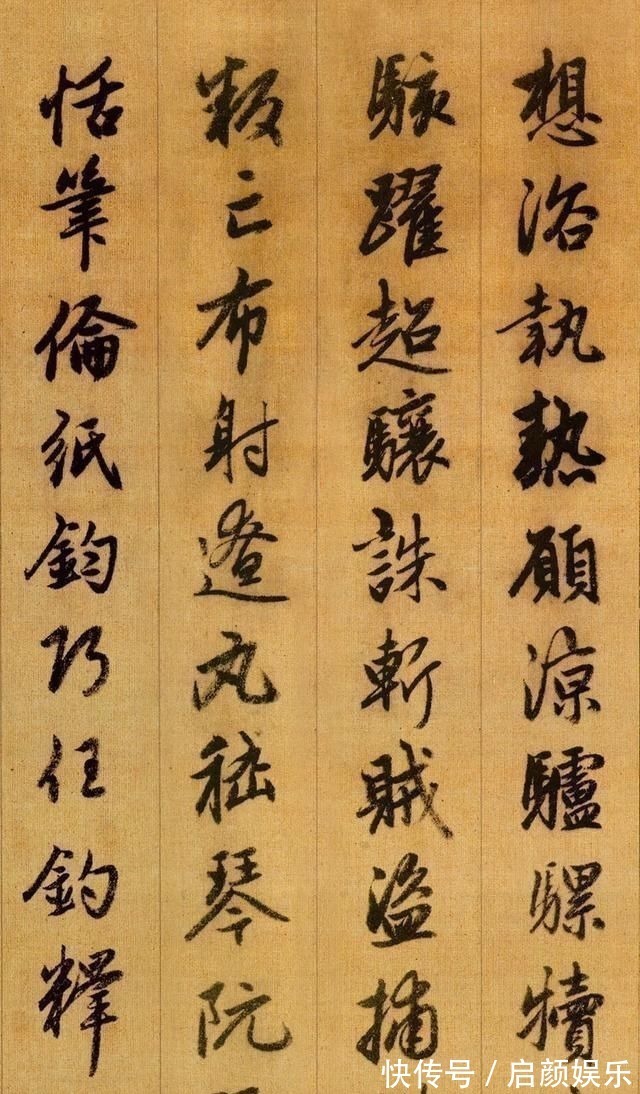 想浴執熱願涼驢騾犢
駭躍超驤誅斬賊盜捕
叛亡布射遼丸嵇琴阮
恬筆倫紙鈞巧任釣釋
快传号／启颜娱乐